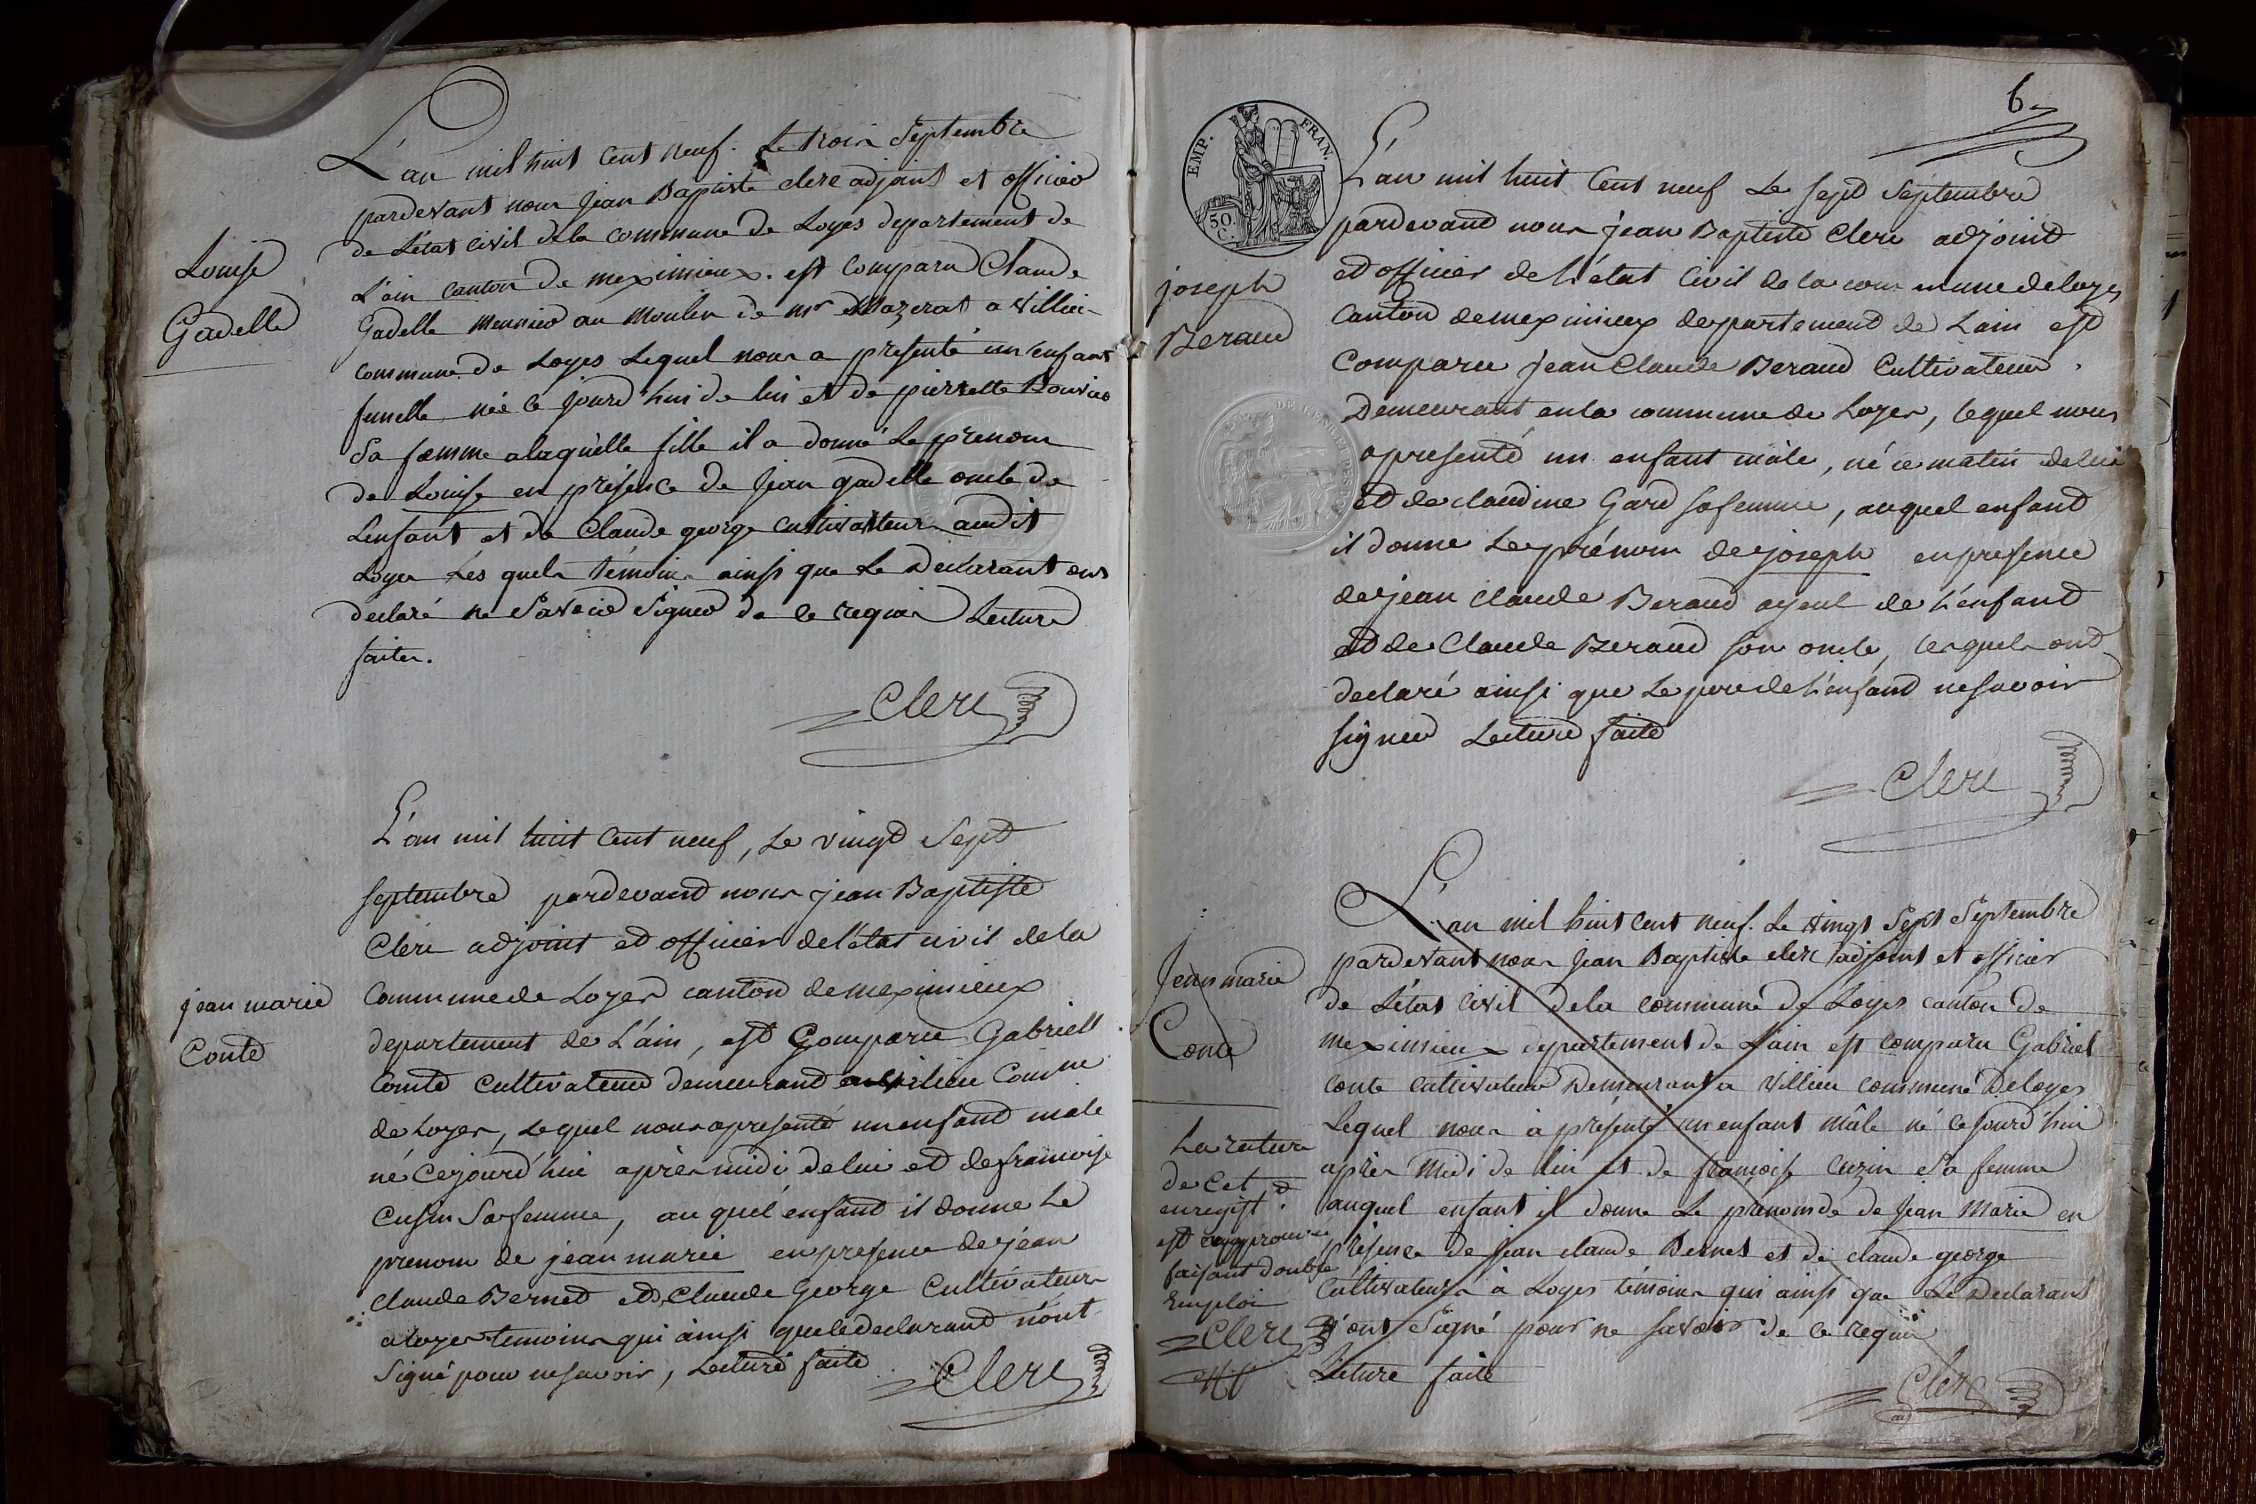 Louise
Gadelle
L'an mil huit Cent neuf. Le trois Septembre
pardevant nous Jean Baptiste clerc adjoint et officier
de L'état civil de la commune de Loyes departement de
L'ain canton de meximieux. est comparu Claude
Gadelle Meunier au Moulin de mr a Villieu
commune de Loyes Lequel nous a présenté un enfant
femelle née ce jourd'hui de lui et de pierrette Bouvier
Sa femme a laquelle fille il a donné Le prenom
de Louise en présence de Jean gadelle oncle de
Lenfant et de Claude george cultivateur audit
Loyes Les quels témoins ainsi que Le Déclarant ont
declaré ne Savoir Signer de ce requis Lecture
faite.
Clerc
jean marie
Conte
L'an mil huit Cent neuf, Le vingt Sept
Septembre pardevant nous jean Baptiste
Clerc adjoint et officier de l'état civil de la
Commune de Loyes canton de meximieux
departement de L'ain, est Comparu Gabriell
Comte Cultivateur demeurant a villieu Comne
de Loyes, Lequel nous a presenté un enfant male
né Cejourd'hui après midi de lui et de francoise
Cusin Sa femme, au quel enfant il donne Le
prenom de jean marie en presence de jean
Claude Bernet et Claude George Cultivateurs
a loyes temoins qui ainsi que le declarant n'ont
Signé pour ne savoir, Lecture faite
Clerc
6
EMP. FRAN.
50 C.
joseph
Beraud
L'an mil huit Cent neuf Le sept Septembre
pardevant nous jean Baptiste Clerc adjoint
et officier de L'état Civil de la commune de loyes
Canton de meximieux departement de Lain est
Comparu jean Claude Beraud Cultivateur.
Demeurant en la commune de Loyes, lequel nous
a presenté un enfant mâle, né ce matin de lui
et de claudine Gard sa femme, auquel enfant
il donne Le prénom de joseph en presence
de jean Claude Beraud ayeul de L'enfant
et de Claude Beraud son oncle, lesquels ont
declaré ainsi que Le pere de L'enfant ne savoir
signer Lecture faite
Clerc
Jean marie
Conte
L'an mil huit Cent Neuf. Le vingt Sept Septembre
pardevant nous Jean Baptiste clerc adjoint et officier
de L'état Civil de la commune de Loyes canton de
meximieux departement de L'ain est comparu Gabriel
conte cultivateur Demeurant a Villieu commune De loyes
Lequel nous à présenté un enfant mâle né ce jourd'hui
après Midi de lui et de françoise Cuzin Sa femme
auquel enfant il donne Le prenom de de Jean Marie en
présence de Jean claude Bernet et de claude george
Cultivateurs à Loyes témoins qui ainsi que Le Declarant
N'ont Signé pour ne savoir de ce requis
Lecture faite
Clerc
La rature
de cet
enregistt.
est approuvée
faisant double
Emploi
Clerc